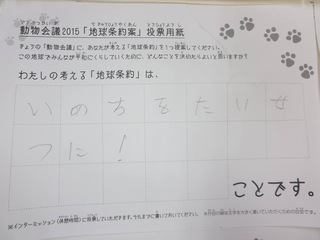 動物会議2015「地球条約案」投票用紙
きょうの「動物会議」に、あなたが考える「地球条約」を1つ提案してください。
この地球でみんなが平和にくらしていくために、どんなことを決めたらよいと思いますか?
わたしの考える「地球条約」は、
いのちをたいせ
つに!
ことです。
※インターミッション(休憩時間)に投票していただきます。それまでに書いておいてください。